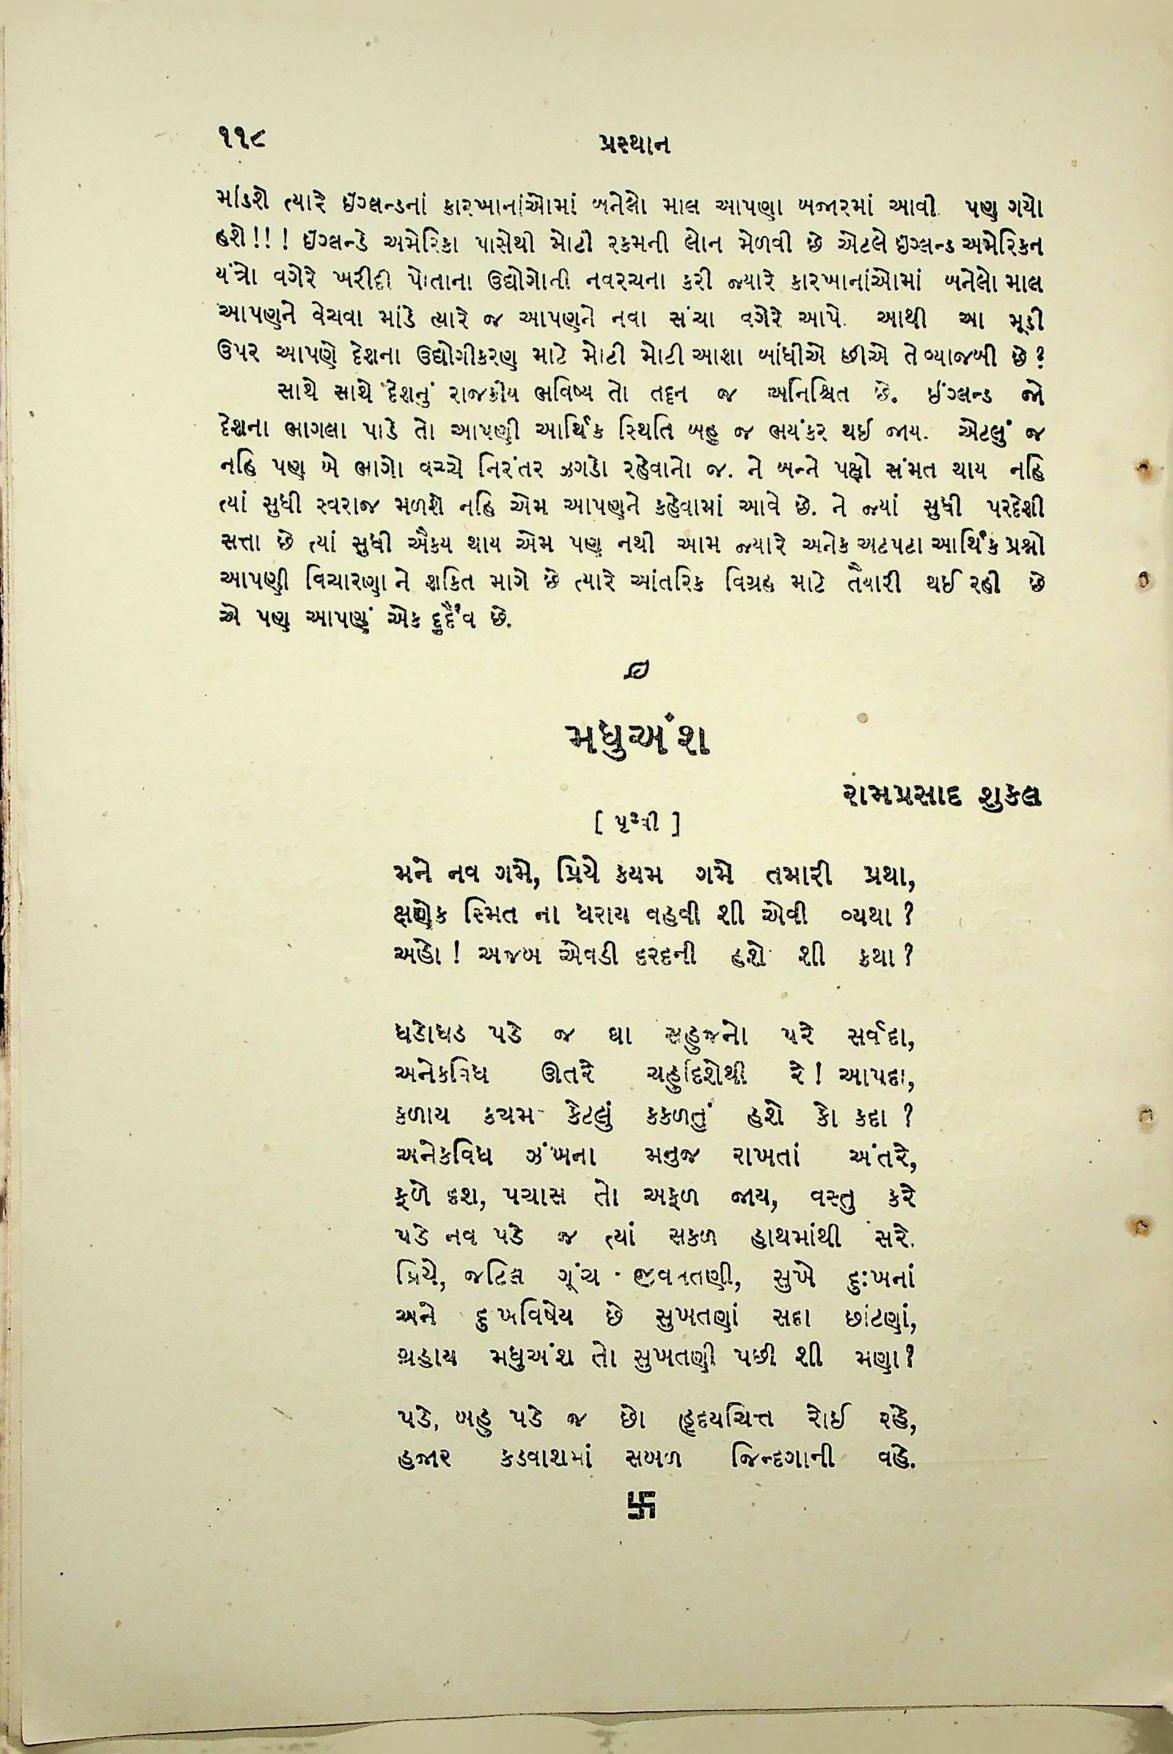 ૧૧૮
પ્રસ્થાન
માંડશે ત્યારે ઇંગ્લન્ડનાં કારખાનાંઓમાં બનેલો માલ આપણા બજારમાં આવી પણ ગયો
હશે!!! ઇંગ્લન્ડે અમેરિકા પાસેથી મોટી રકમની લોન મેળવી છે એટલે ઇંગ્લન્ડ અમેરિકન
યંત્રો વગેરે ખરીદી પોતાના ઉદ્યોગોની નવરચના કરી જ્યારે કારખાનાંઓમાં બનેલો માલ
આપણને વેચવા માંડે ત્યારે જ આપણને નવા સંચા વગેરે આપે. આથી આ મૂડી
ઉપર આપણે દેશના ઉદ્યોગીકરણ માટે મોટી મોટી આશા બાંધીએ છીએ તે વ્યાજબી છે?
સાથે સાથે દેશનું રાજકીય ભવિષ્ય તો તદ્દન જ અનિશ્ચિત છે. ઇંગ્લન્ડ જો
દેશના ભાગલા પાડે તો આપણી આર્થિક સ્થિતિ બહુ જ ભયંકર થઈ જાય. એટલું જ
નહિ પણ બે ભાગો વચ્ચે નિરંતર ઝગડો રહેવાનો જ. ને બન્ને પક્ષો સંમત થાય નહિ
ત્યાં સુધી સ્વરાજ મળશે નહિ એમ આપણને કહેવામાં આવે છે. ને જ્યાં સુધી પરદેશી
સત્તા છે ત્યાં સુધી ઐક્ય થાય એમ પણ નથી આમ જ્યારે અનેક અટપટા આર્થિક પ્રશ્નો
આપણી વિચારણા ને શક્તિ માગે છે ત્યારે આંતરિક વિગ્રહ માટે તૈયારી થઈ રહી છે
એ પણ આપણું એક દુર્દૈવ છે.
મધુઅંશ
રામપ્રસાદ શુકલ
[ પૃથ્વી ]
મને નવ ગમે, પ્રિયે કયમ ગમે તમારી પ્રથા,
ક્ષણેક સ્મિત ના ધરાય વહવી શી એવી વ્યથા?
અહો! અજબ એવડી દરદની હશે શી કથા?
ધડોધડ પડે જ ઘા સહુજનો પરે સર્વદા,
અનેકવિધ ઊતરે ચહુદિશેથી રે! આપદા,
કળાય કયમ કેટલું કકળતું હશે કો કદા?
અનેકવિધ ઝંખના મનુજ રાખતાં અંતરે,
ફળે દશ, પચાસ તો અફળ જાય, વસ્તુ કરે
પડે નવ પડે જ ત્યાં સકળ હાથમાંથી સરે.
પ્રિયે, જટિલ ગૂંચ જીવનતણી, સુખે દુઃખનાં
અને દુખવિષેય છે સુખતણાં સદા છાંટણાં,
ગ્રહાય મધુઅંશ તો સુખતણી પછી શી મણા?
પડે, બહુ પડે જ છો હૃદયચિત્ત રોઈ રહે,
હજાર કડવાશમાં સબળ જિન્દગાની વહે.